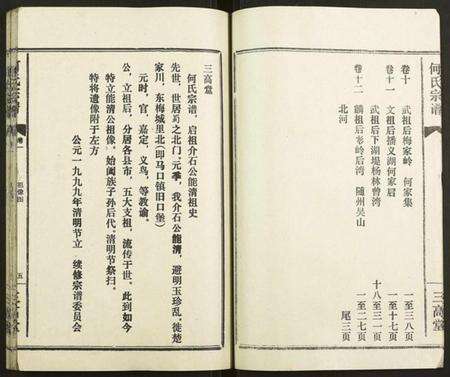 何氏宗谱
三高堂
卷十 武祖后梅家岭 何家集 一至三八页
卷十一 文祖后播义湖何家眉 一至十七页
武祖后下湖堤杨林曾湾 十八至三一页
卷十二 麟祖后 岭后湾 随州吴山 一至二七页
北河 尾三页
三高堂
何氏宗谱，启祖介石公能清祖史
先世，世居 之北门，元季，我介石公能清，避明玉珍乱，徙楚
家川，东梅城里北（即马口镇旧口堡）
元时，官，嘉定，义乌，等教谕。
公，立祖后，分居各县市，五大支祖，流传于世。此到如今
特立能清公祖像，始阖族子孙后代。清明节祭扫。
特将遗像附于左方
公元一九九九年清明节立 续修宗谱委员会
何氏宗谱
卷一
祖像图
五
三高堂